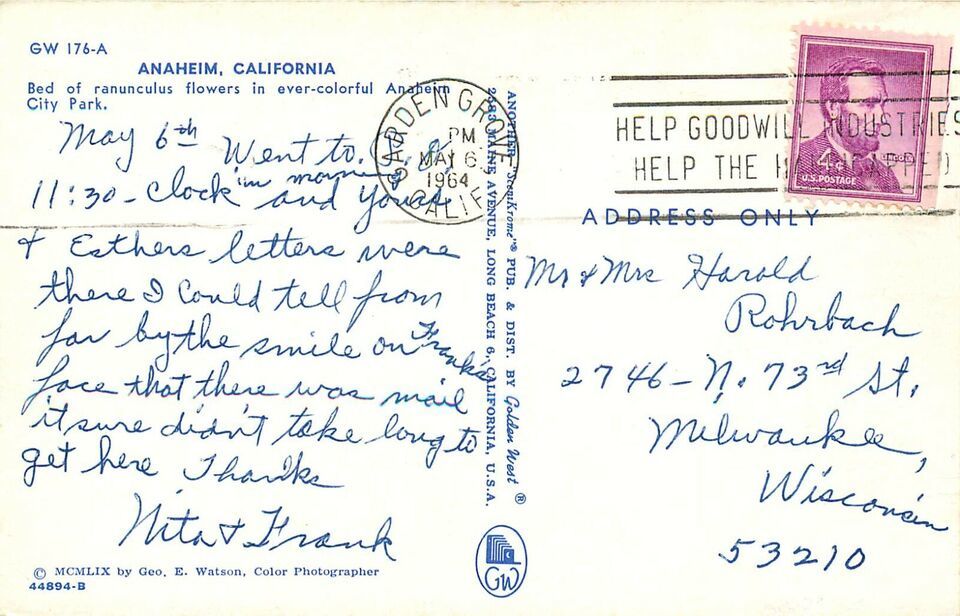 GW 176-A
ANAHEIM, CALIFORNIA
Bed of ranunculus flowers in ever-colorful Anaheim
City Park.
May 6th Went to
11:30 - Clock in morning and yours
+ Esthers letters were
there I could tell from
far by the smile on Franks
face that there was mail
it sure didn't take long to
get here Thanks
Nita & Frank
© MCMLIX by Geo. E. Watson, Color Photographer
44894-B
ANOTHER "ScenKrome"® PUB. & DIST. BY Golden West ®
2483 MAINE AVENUE, LONG BEACH 6, CALIFORNIA, U.S.A.
GW
GARDEN GROVE
PM
MAY 6
1964
CALIF
HELP GOODWILL INDUSTRIES
HELP THE HANDICAPPED
4¢
U.S. POSTAGE
ADDRESS ONLY
Mr & Mrs Harold
Rohrbach
2746 - N. 73rd St.
Milwaukee,
Wisconsin
53210